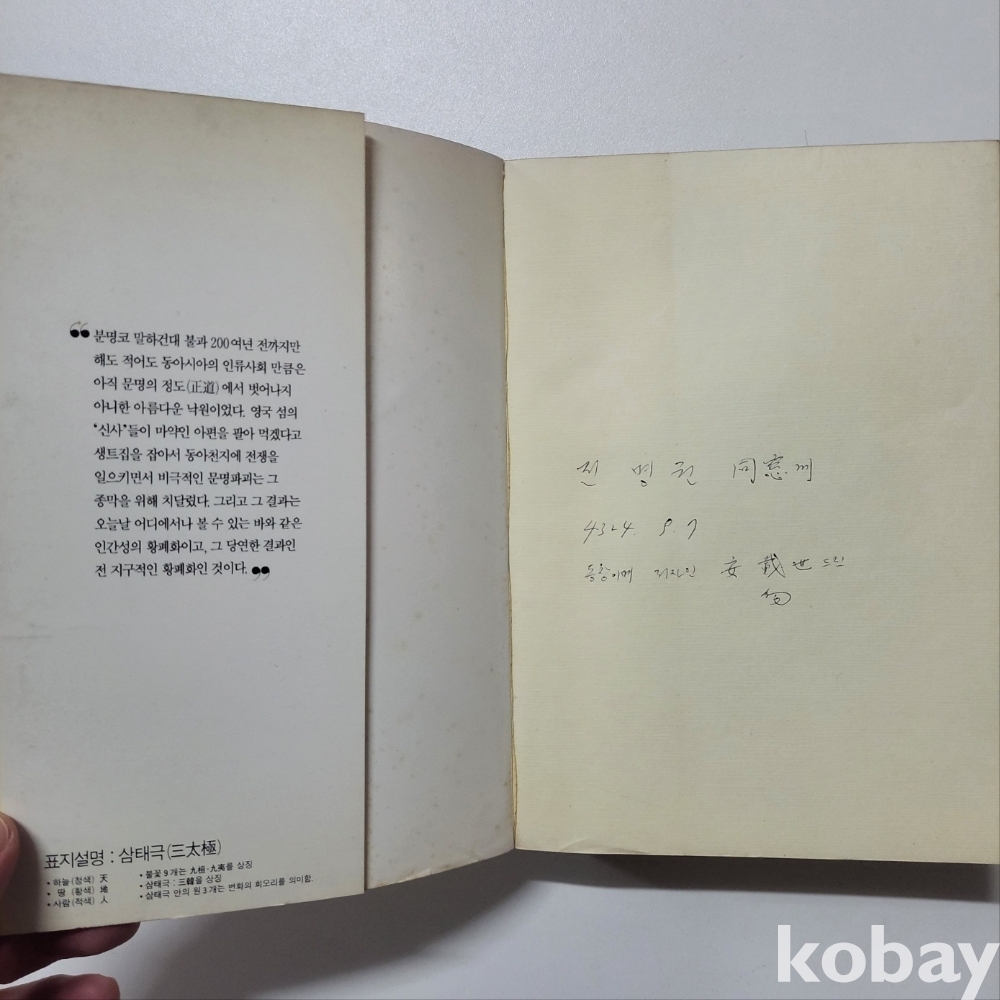 ❝ 분명코 말하건대 불과 200여년 전까지만
해도 적어도 동아시아의 인류사회 만큼은
아직 문명의 정도(正道)에서 벗어나지
아니한 아름다운 낙원이었다. 영국 섬의
"신사"들이 마약인 아편을 팔아 먹겠다고
생트집을 잡아서 동아천지에 전쟁을
일으키면서 비극적인 문명파괴는 그
종막을 위해 치달렸다. 그리고 그 결과는
오늘날 어디에서나 볼 수 있는 바와 같은
인간성의 황폐화이고, 그 당연한 결과인
전 지구적인 황폐화인 것이다. ❞
표지설명 : 삼태극(三太極)
• 하늘(청색) 天
• 땅 (황색) 地
• 사람(적색) 人
• 불꽃 9개는 九桓·九夷를 상징
• 삼태극 : 三韓을 상징
• 삼태극 안의 원 3개는 변화의 회오리를 의미함.
전 병권 同窓께
4324. 9. 7
동창이며 저자인 安 載 世 드림
kobay